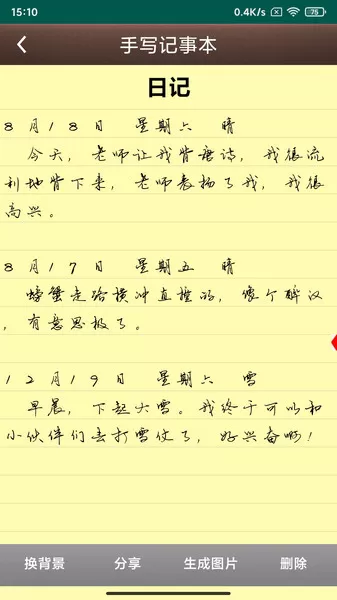 15:10
0.4K/s
75
手写记事本
日记
8月18日 星期六 晴
今天，老师让我背唐诗，我很流
利地背下来，老师表扬了我，我很
高兴。
8月17日 星期五 晴
螃蟹走路横冲直撞的，像个醉汉
，有意思极了。
12月19日 星期六 雪
早晨，下起大雪。我终于可以和
小伙伴们去打雪仗了，好兴奋啊！
换背景
分享
生成图片
删除